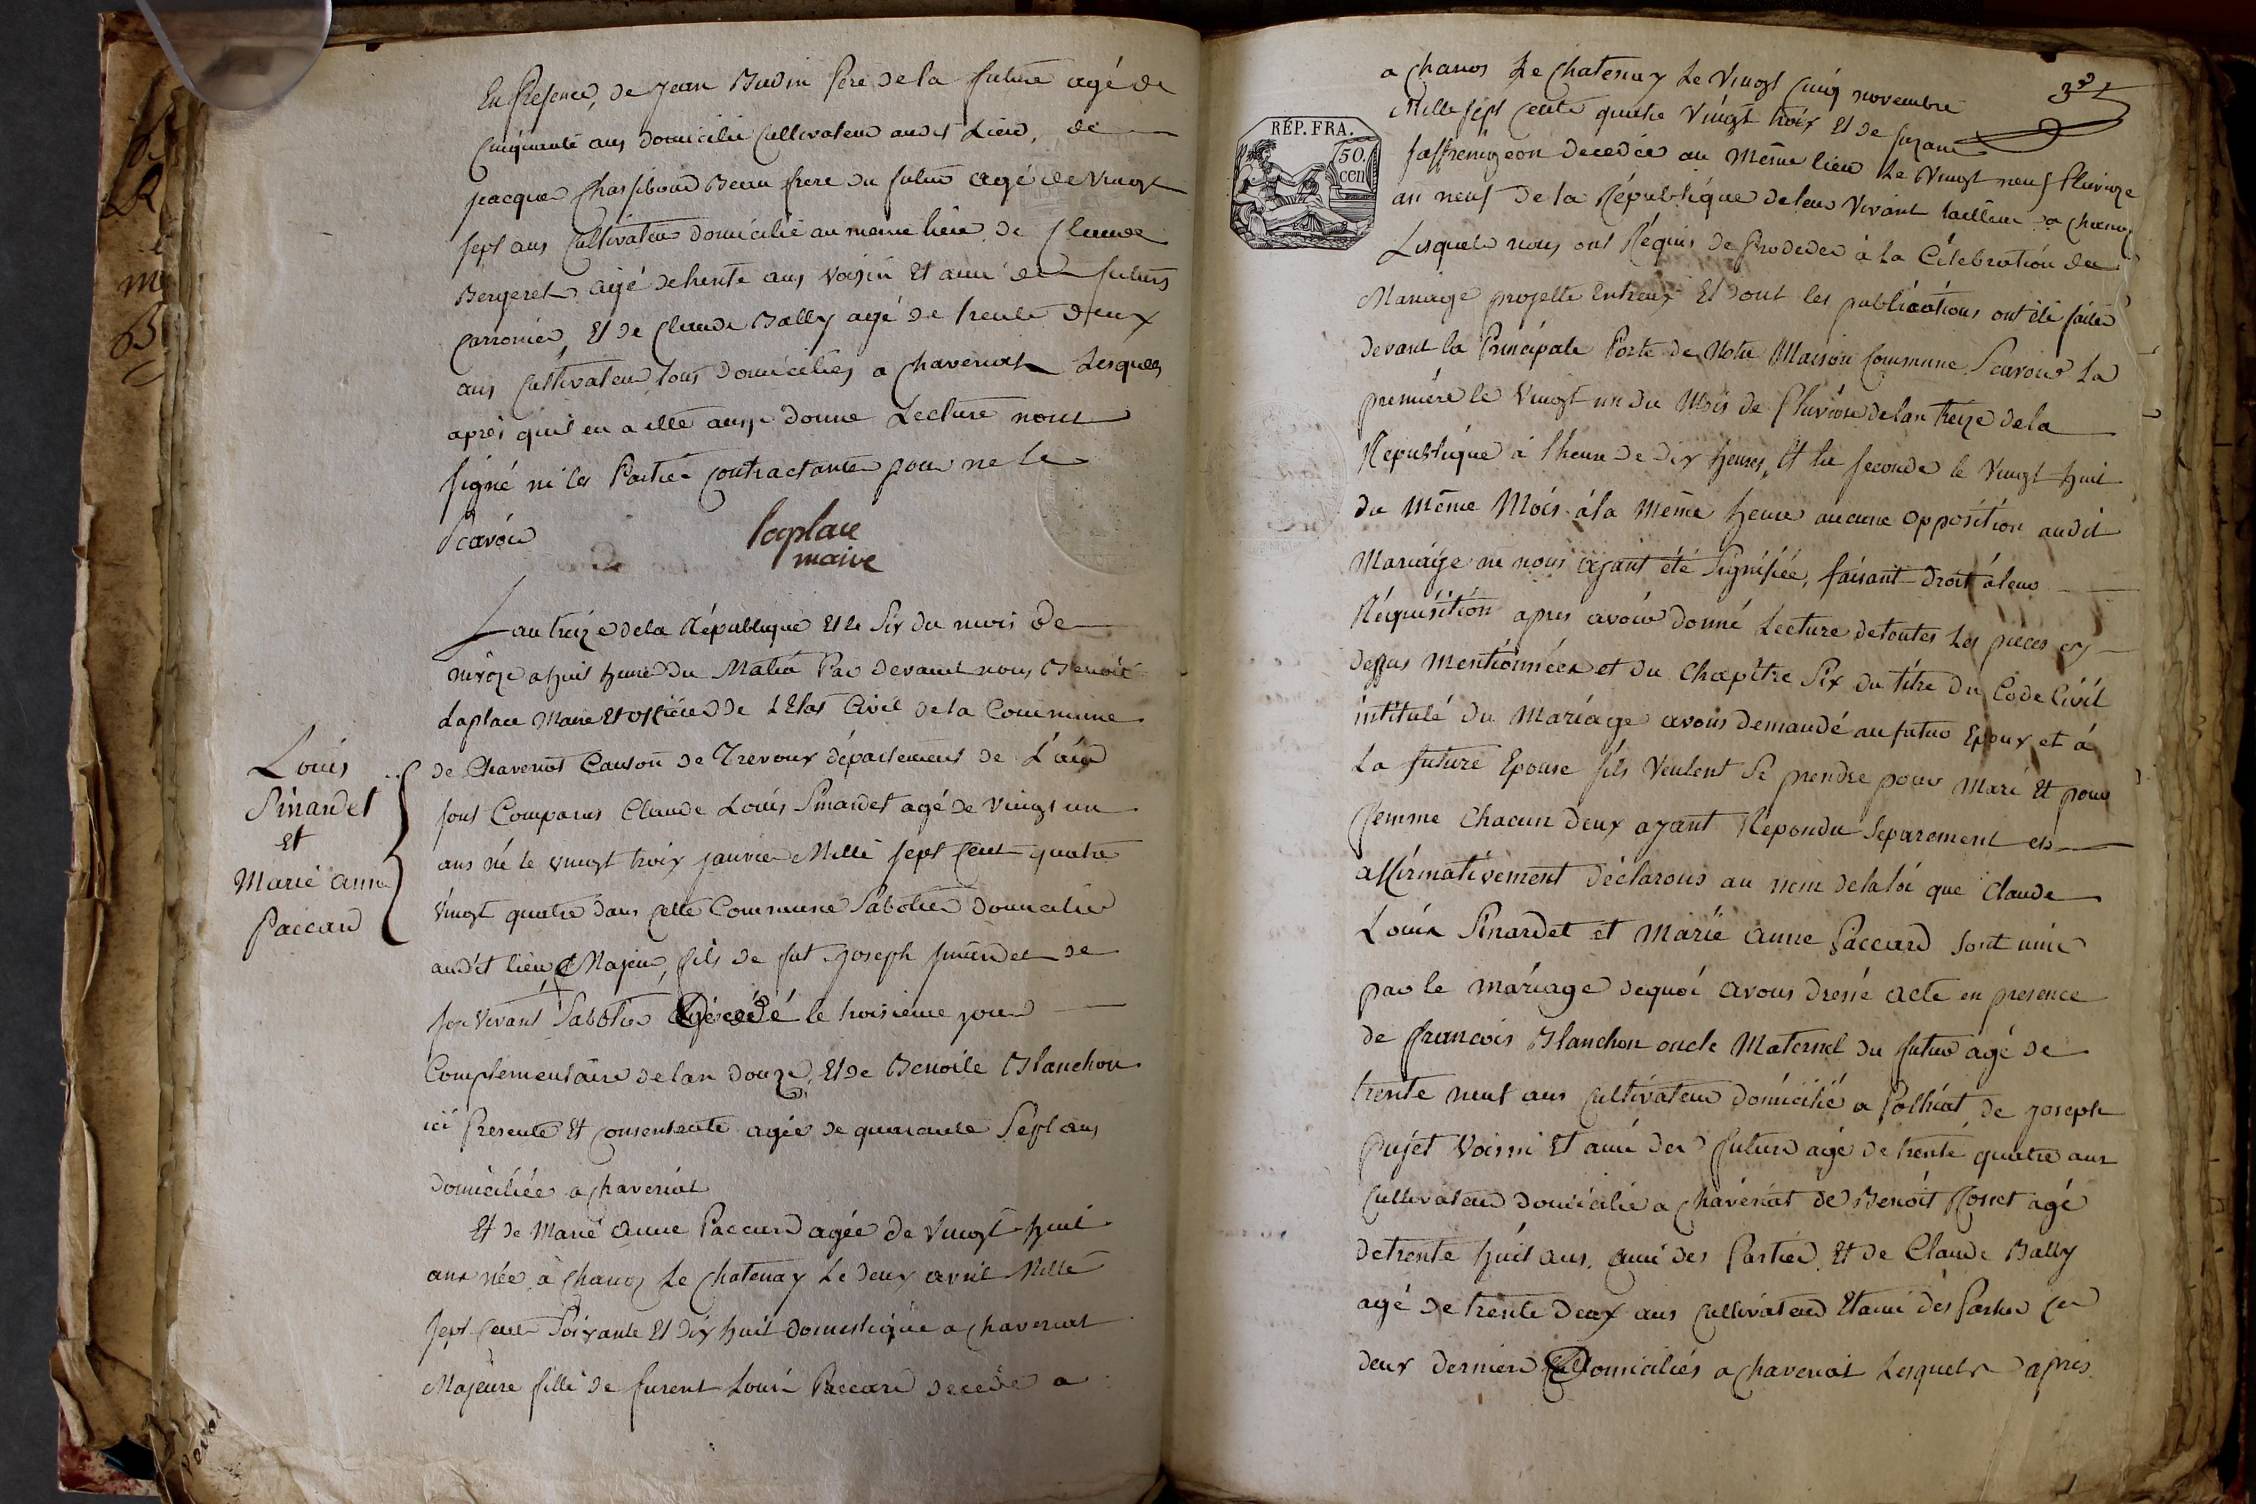 En presence, de Jean Budin Pere de la future agé de
Cinquante ans domicilié Cultivateur audit Lieu, de
jacque Chassiboud Beau frere du futur agé de Vingt
sept ans Cultivateur domicilié au meme lieu de Claude
Bergeret agé de trente ans Voisin Et ami des futurs
Et de Claude Bally agé de trente deux
ans Cultivateur tous domiciliés a Chaveriat Lesquels
après quil en a etté aussi donné Lecture nont
signé ni les Parties Contractantes pour ne le
Scavoir
laplace
maire
Lan treize de la République Et le Six du mois de
nivôze a huit heure du Matin Par devant nous Benoit
Laplace Maire Et officier de L'Etat Civil de la Commune
de Chaveriat Canton de Trevoux département de L'ain
Louis
Pinardet
Et
Marie anne
Paccard
sont Comparus Claude Louis Pinardet agé de vingt un
ans né le vingt trois janvier Mille sept Cent quatre
vingt quatre dans Cette Commune Sabotier domicilié
audit lieu Majeur, fils de fut joseph pinardet de
son vivant Sabotier Décédé le troisieme jour
Complementaire de lan douze, Et de Benoite Blanchon
ici Presente Et Consentante agée de quarante Sept ans
domiciliée a Chaveriat
Et de Marie anne Paccard agée de Vingt huit
ans née à Chanoz Le Chatenay Le deux avril Mille
sept Cent Soixante Et Dix huit domestique a Chaveriat
Majeure fille de furent Louis Paccard decedé a
3e
RÉP. FRA.
50.
cen
a Chanos Le Chatenay Le Vingt Cinq novembre
Mille sept Cents quatre Vingt trois Et de suzane
decedée au Même lieu Le Vingt neuf Pluvioze
an neuf de la République de leur Vivant tailleur a Chanoz
Lesquels nous ont Réquis de Proceder à la Célébration du
Mariage projetté Entreux Et dont les publications ont été faites
devant la Principale Porte de Notre Maison Commune Scavoir La
première le Vingt un du Mois de Pluviose de lan treize de la
République à lheure de dix heures, Et la seconde le Vingt huit
du Même Mois à la Même heure aucune opposition audit
Mariage ne nous ayant été Signifiée, faisant droit à leur
Réquisition apres avoir donné Lecture de toutes Les pieces cy
dessus mentionnées et du Chapitre Six du titre du Code Civil
intitulé du Mariage avons demandé au futur Epoux et á
La future Epouse sils Veulent Se prendre pour Mari Et pour
femme Chacun deux ayant Repondu Separement et
affirmativement déclarons au nom de la loi que Claude
Louis Pinardet et Marie anne Paccard sont unis
par le máriage dequoi avons dressé acte en presence
de francois Blanchon oncle Maternel du futur agé de
trente neuf ans Cultivateur domicilié a Polliat de joseph
Pujet Voisin Et ami des futurs agé de trente quatre ans
Cultivateur domicilié a Chaveriat de Benoit Rosset agé
de trente huit ans. ami des Parties Et de Claude Bally
agé de trente deux ans Cultivateur Et ami des Parties Ces
deux derniers Domiciliés a Chaveriat Lesquels apres